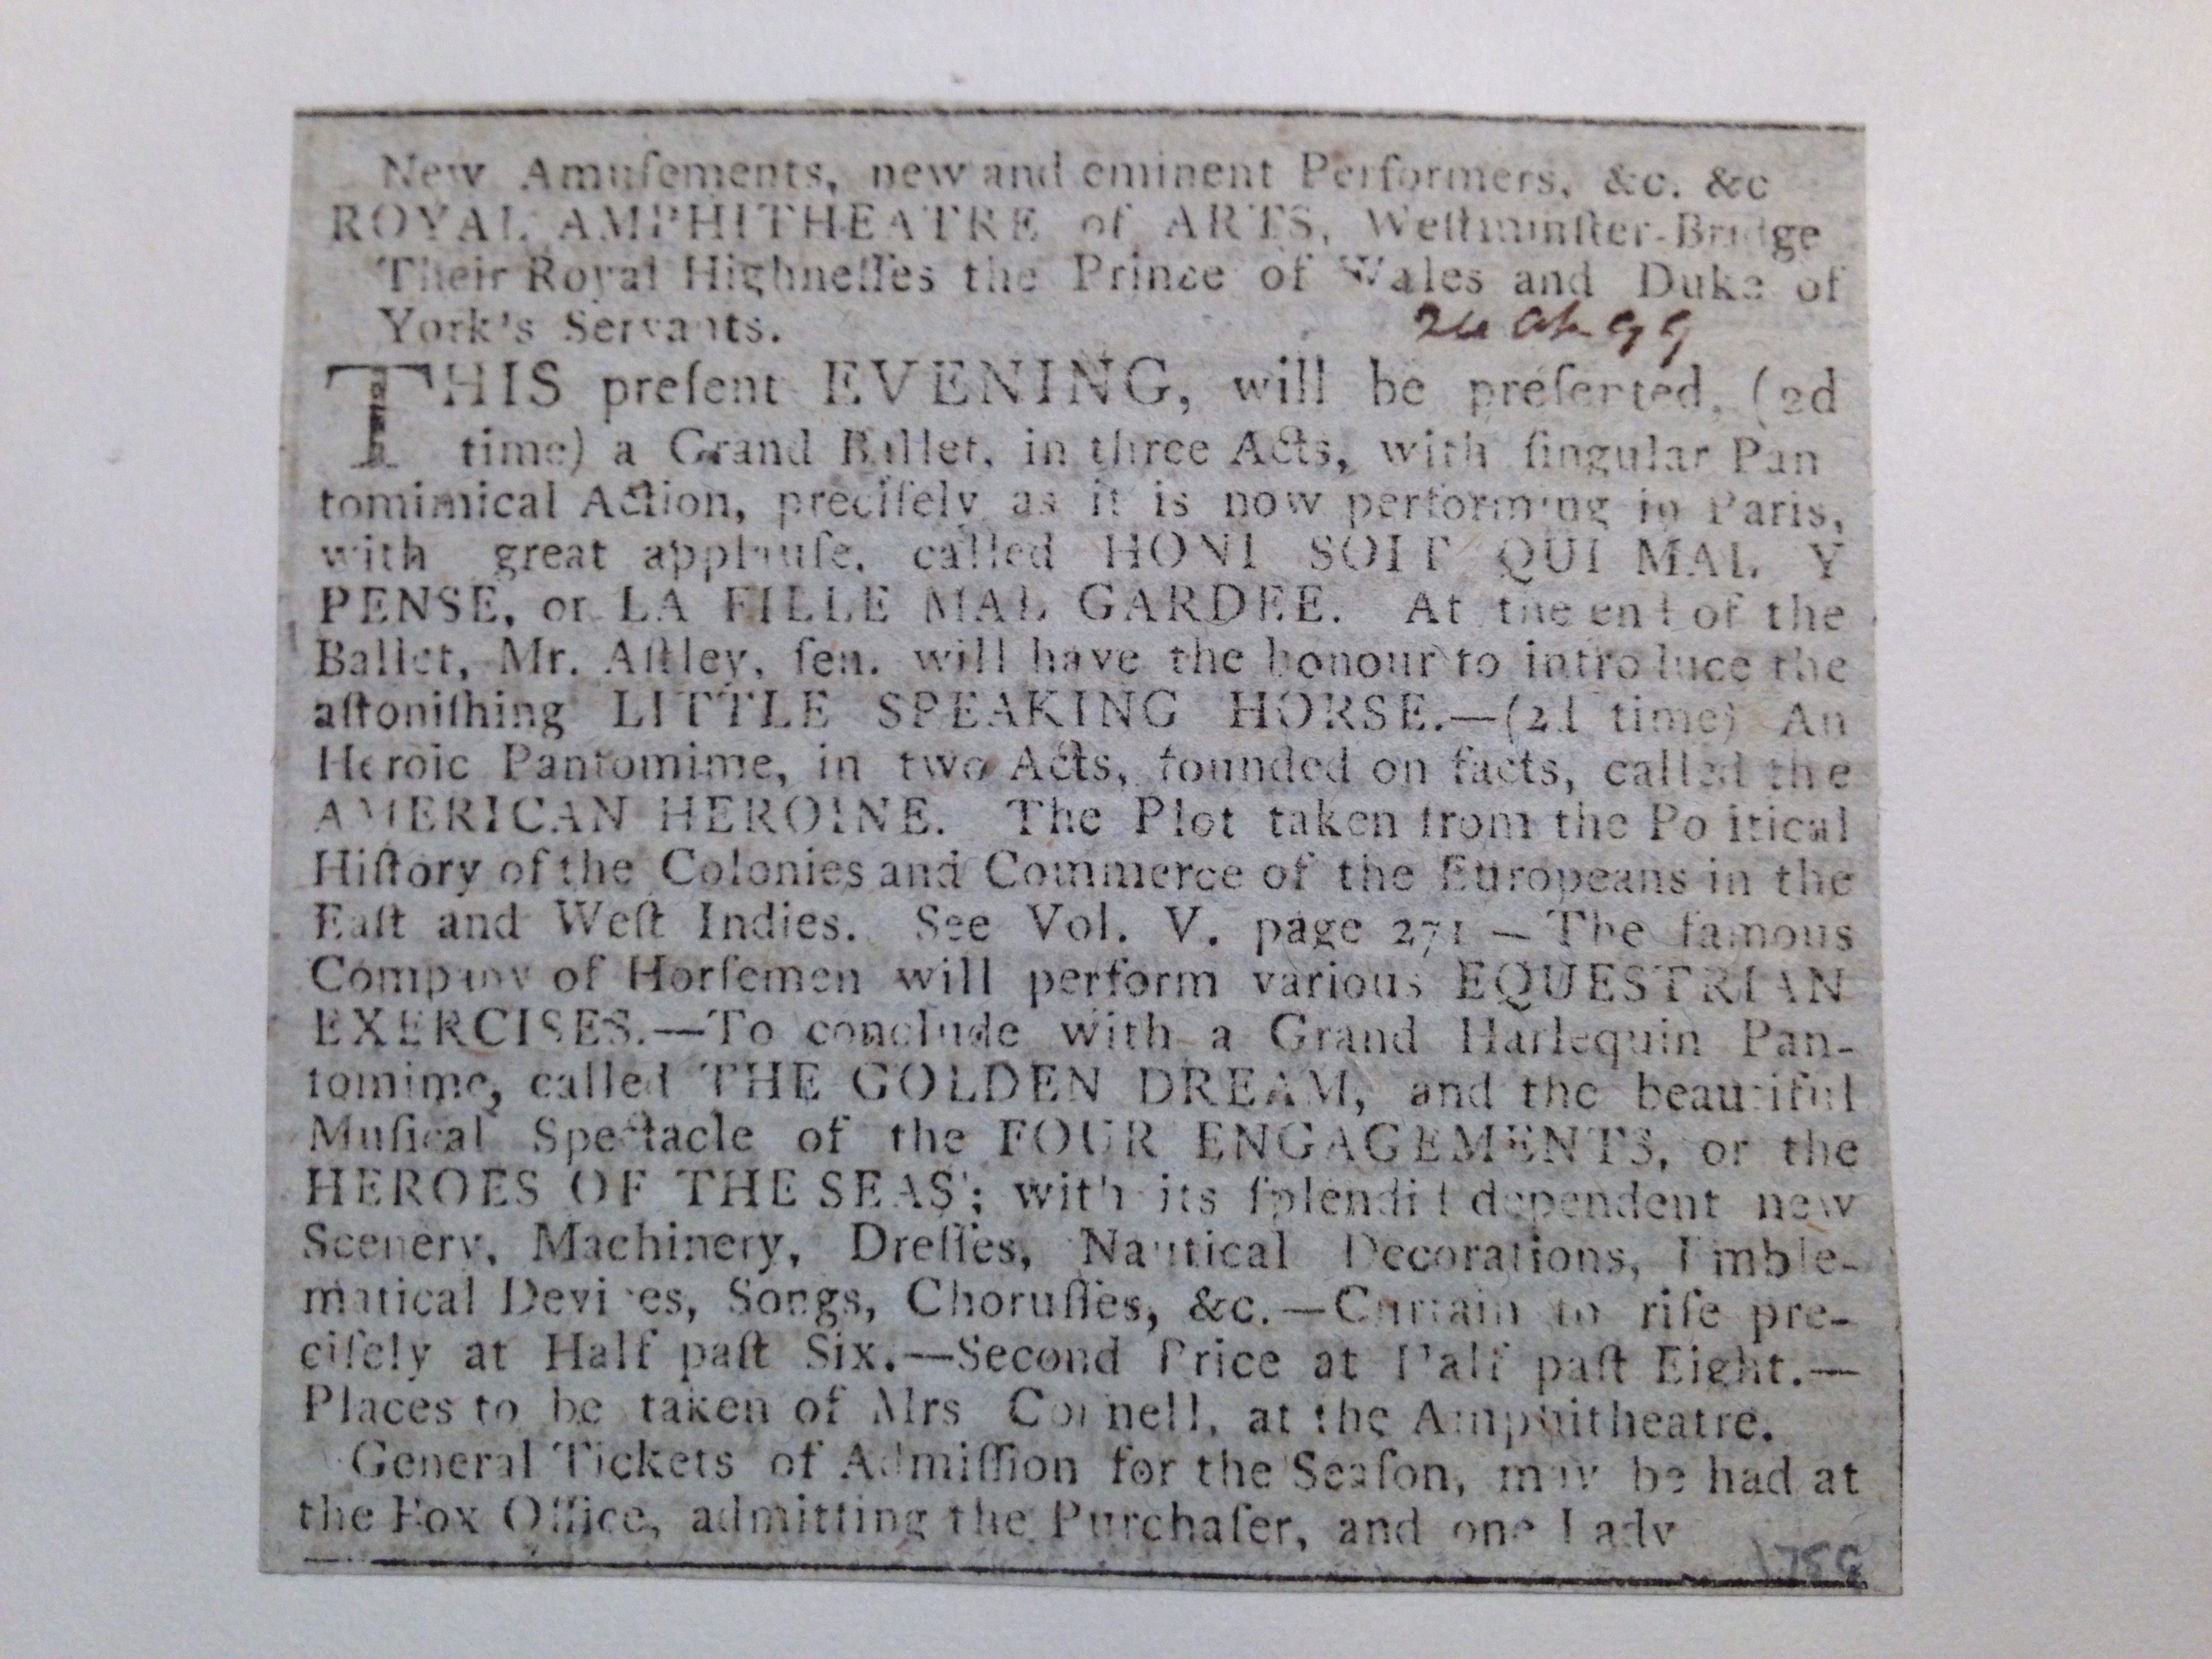 New Amuſements, new and eminent Performers, &c. &c
ROYAL AMPHITHEATRE of ARTS, Weſtminſter-Bridge
Their Royal Highneſſes the Prince of Wales and Duke of
York's Servants.
THIS preſent EVENING, will be preſented, (2d
time) a Grand Ballet, in three Acts, with ſingular Pan
tomimical Action, preciſely as it is now performing in Paris,
with great applauſe, called HONI SOIT QUI MAL Y
PENSE, or LA FILLE MAL GARDEE. At the end of the
Ballet, Mr. Aſtley, ſen. will have the honour to introduce the
aſtoniſhing LITTLE SPEAKING HORSE.—(2d time) An
Heroic Pantomime, in two Acts, founded on facts, called the
AMERICAN HEROINE. The Plot taken from the Political
Hiſtory of the Colonies and Commerce of the Europeans in the
Eaſt and Weſt Indies. See Vol. V. page 271 — The famous
Company of Horſemen will perform various EQUESTRIAN
EXERCISES.—To conclude with a Grand Harlequin Pan-
tomime, called THE GOLDEN DREAM, and the beautiful
Muſical Spectacle of the FOUR ENGAGEMENTS, or the
HEROES OF THE SEAS; with its ſplendid dependent new
Scenery, Machinery, Dreſſes, Nautical Decorations, Emble-
matical Devices, Songs, Choruſſes, &c.—Curtain to riſe pre-
ciſely at Half paſt Six.—Second Price at Half paſt Eight.—
Places to be taken of Mrs Connell, at the Amphitheatre.
General Tickets of Admiſſion for the Seaſon, may be had at
the Box Office, admitting the Purchaſer, and one Lady